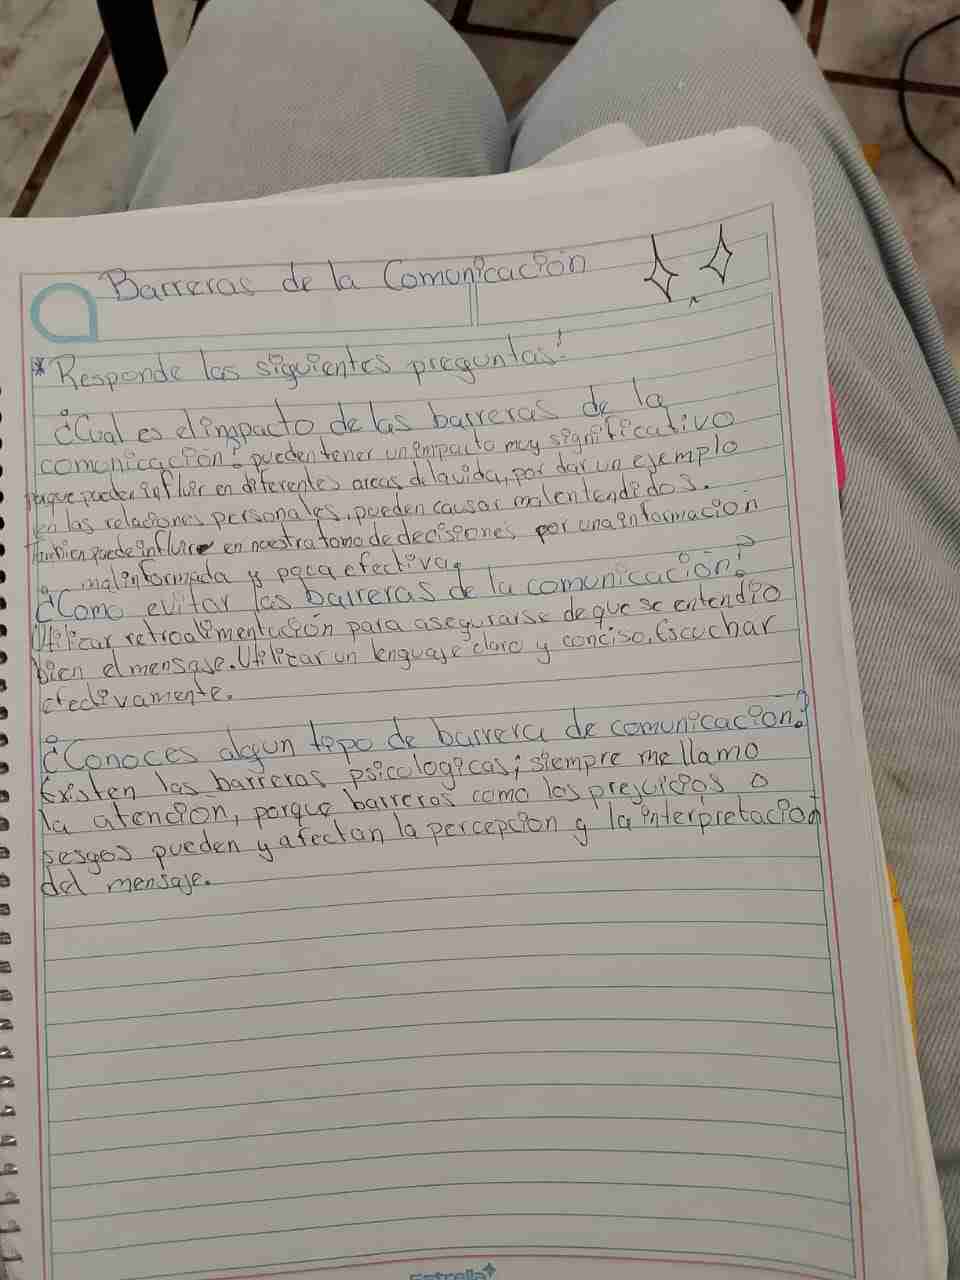 Barreras de la Comunicación
*Responde las siguientes preguntas:
¿Cual es el impacto de las barreras de la
comunicación? pueden tener un impacto muy significativo
ya que puede influir en diferentes areas de la vida, por dar un ejemplo
en las relaciones personales, pueden causar malentendidos.
Tambien puede influir en nuestra toma de decisiones por una informacion
mal informada y poca efectiva.
¿Como evitar las barreras de la comunicación?
Utilizar retroalimentación para asegurarse de que se entendio
bien el mensaje. Utilizar un lenguaje claro y conciso. Escuchar
efectivamente.
¿Conoces algun tipo de barrera de comunicación?
Existen las barreras psicologicas; siempre me llamo
la atencion, porque barreras como los prejuicios o
sesgos pueden y afectan la percepcion y la interpretacion
del mensaje.
Estrella